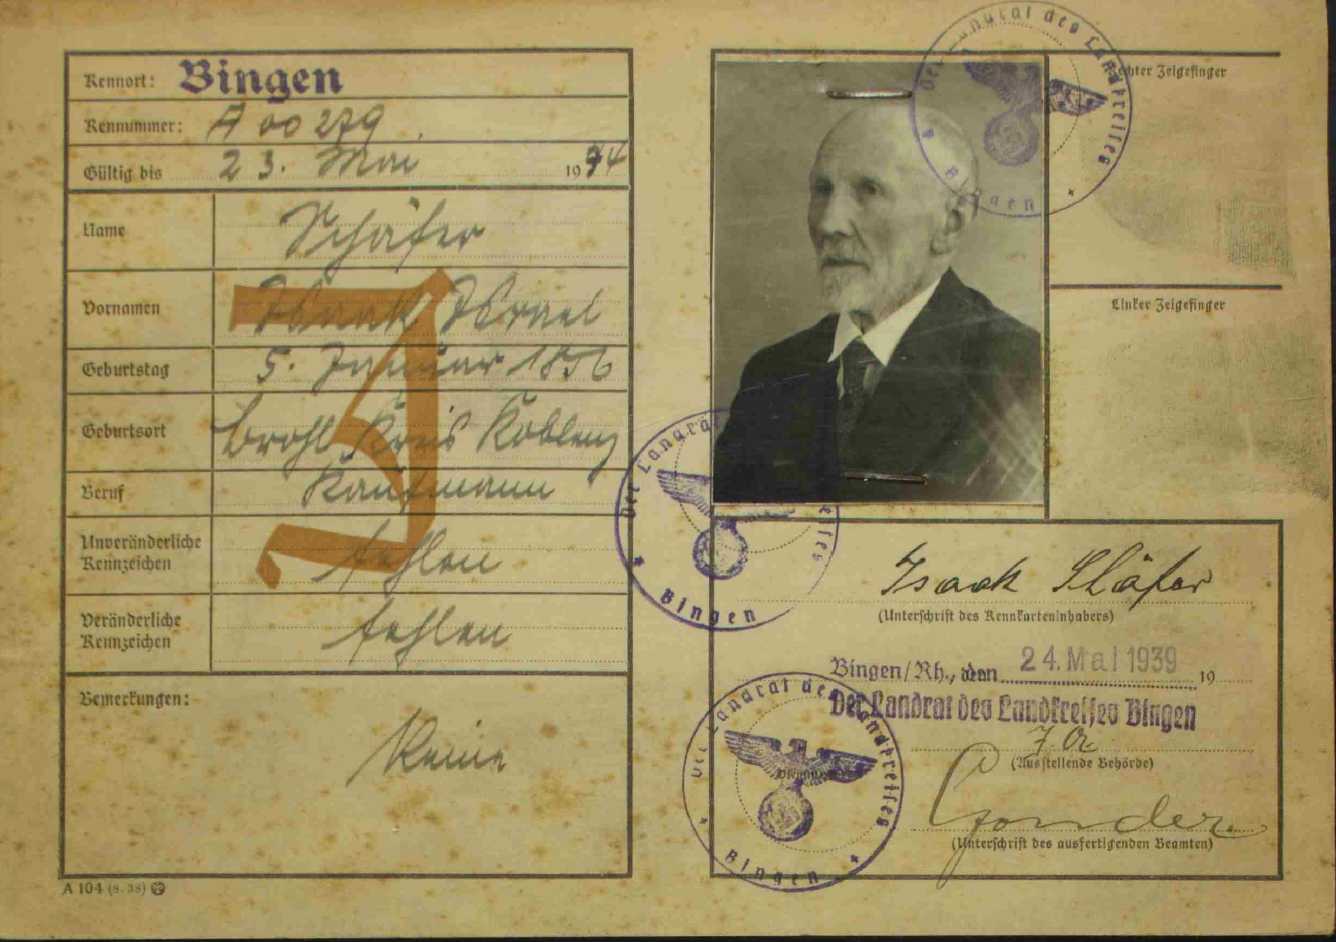 Kennort: Bingen
Kennummer: A 00279
Gültig bis 23. Mai 1944
Name Schäfer
Vornamen Isaak Israel
Geburtstag 5. Januar 1856
Geburtsort Brohl Kreis Koblenz
Beruf Kaufmann
Unveränderliche
Kennzeichen fehlen
Veränderliche
Kennzeichen fehlen
Bemerkungen:
Keine
A 104 (8. 38)
J
Der Landrat des Landkreises
Bingen
Rechter Zeigefinger
Linker Zeigefinger
Der Landrat des Landkreises
Bingen
Isaak Schäfer
(Unterschrift des Kennkarteninhabers)
Bingen/Rh., den 24. Mai 1939 19
Der Landrat des Landkreises Bingen
(Ausstellende Behörde)
Gonder
(Unterschrift des ausfertigenden Beamten)
Der Landrat des Landkreises
Bingen